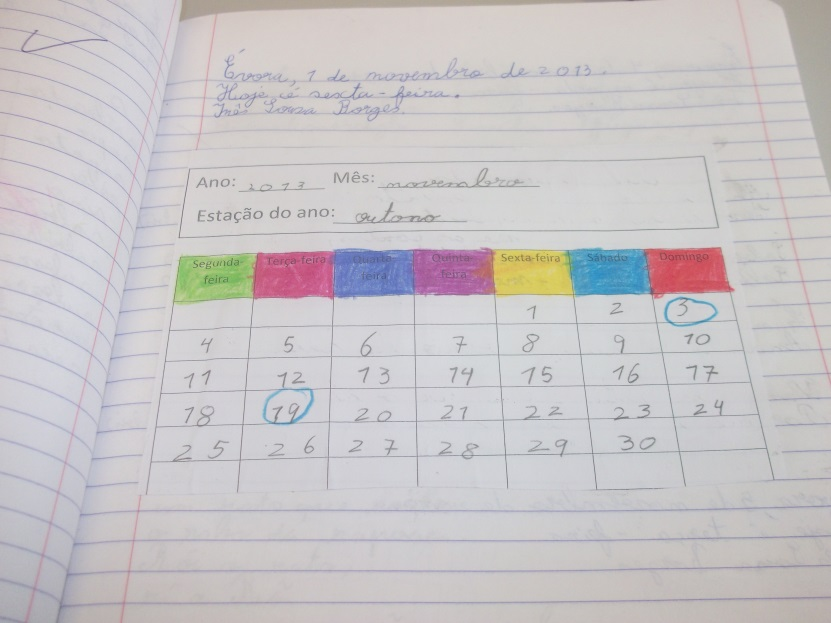 Évora, 1 de novembro de 2013.
Hoje é sexta-feira.
Inês Sousa Borges
Ano: 2013 Mês: novembro
Estação do ano: outono
Segunda-feira Terça-feira Quarta-feira Quinta-feira Sexta-feira Sábado Domingo
1 2 3
4 5 6 7 8 9 10
11 12 13 14 15 16 17
18 19 20 21 22 23 24
25 26 27 28 29 30